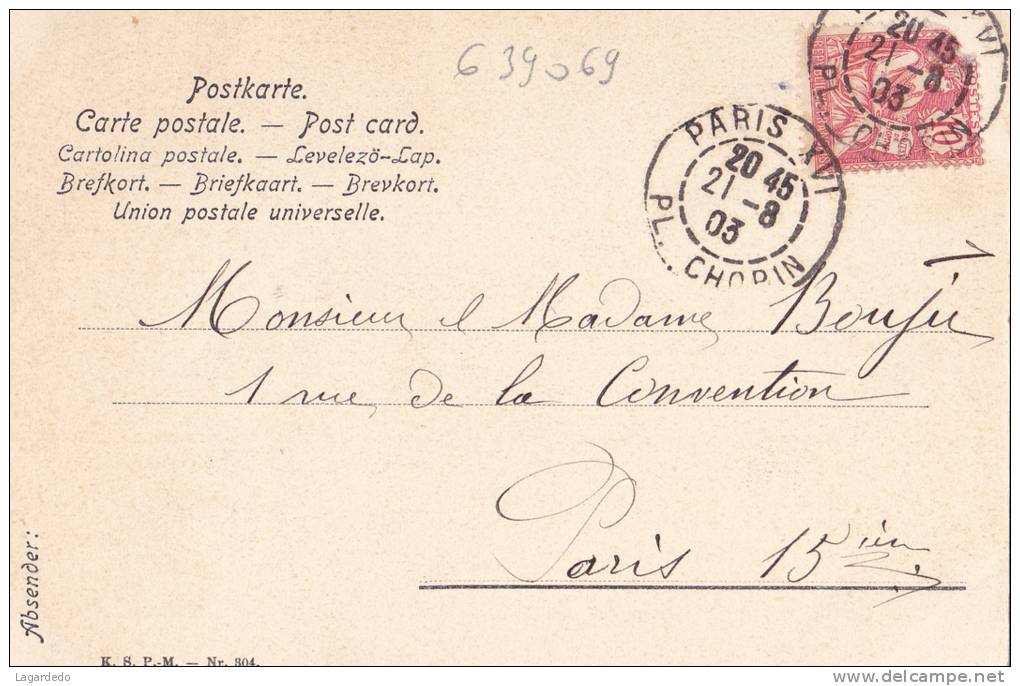 6 39 069
Postkarte.
Carte postale. — Post card.
Cartolina postale. — Levelezö-Lap.
Brefkort. — Briefkaart. — Brevkort.
Union postale universelle.
20 45
21 - 8
03
PL.
10
PARIS XVI
20 45
21 - 8
03
PL. CHOPIN
Monsieur & Madame Boujū
1 rue de la Convention
Paris 15ièm
Absender:
K. S. P.-M. — Nr. 304.
Lagardedo
www.delcampe.net